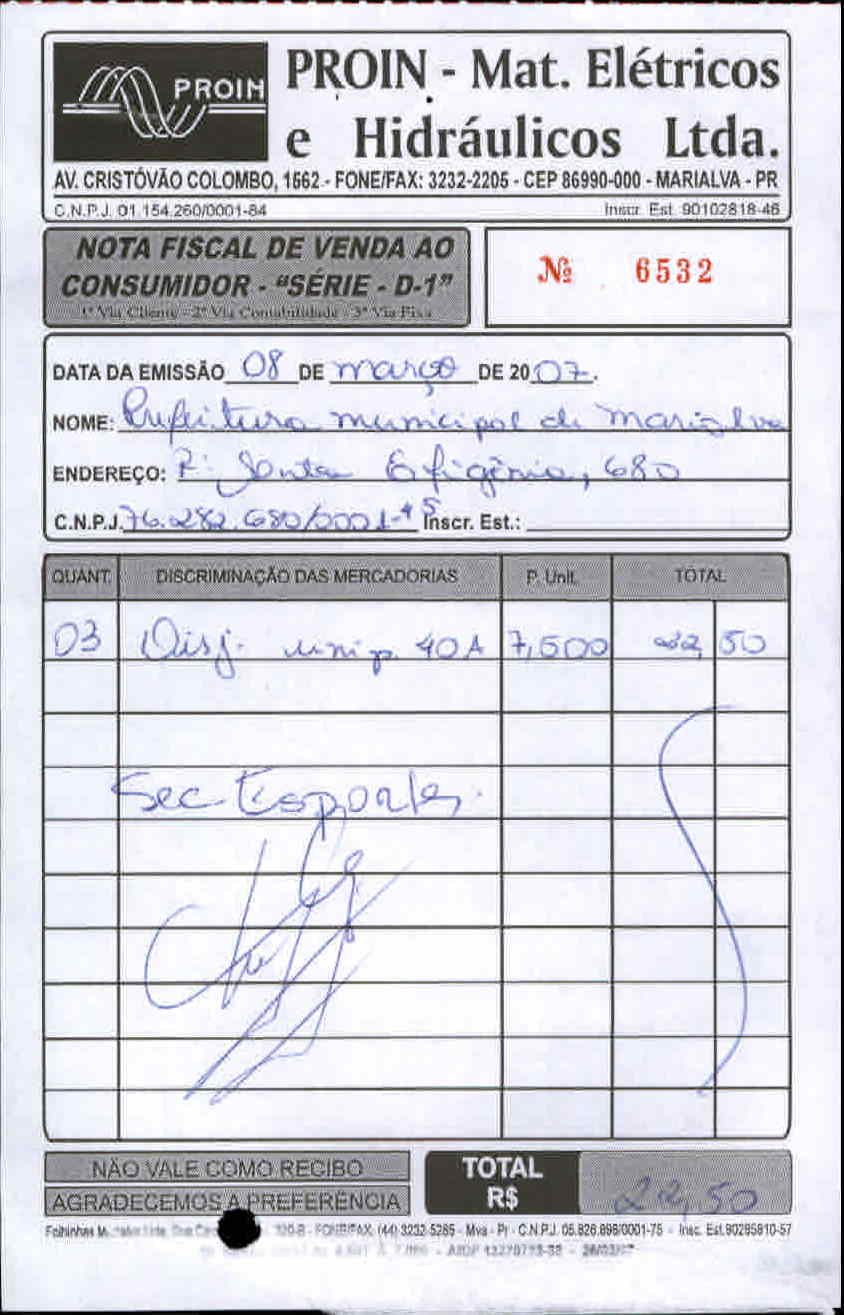 PROIN
PROIN - Mat. Elétricos
e Hidráulicos Ltda.
AV. CRISTÓVÃO COLOMBO, 1562 - FONE/FAX: 3232-2205 - CEP 86990-000 - MARIALVA - PR
C.N.P.J. 01.154.260/0001-84 Inscr. Est. 90102818-46
NOTA FISCAL DE VENDA AO
CONSUMIDOR - "SÉRIE - D-1"
1ª Via Cliente - 2ª Via Contabilidade - 3ª Via Fixa
Nº 6532
DATA DA EMISSÃO 08 DE março DE 2007.
NOME: Prefeitura municipal de marialva
ENDEREÇO: R: Santa Efigênia, 680
C.N.P.J. 76.282.680/0001-45 Inscr. Est.:
QUANT. DISCRIMINAÇÃO DAS MERCADORIAS P. Unit. TOTAL
03 Disj. unip. 40A 7,500 22,50
Sec Esportes.
NÃO VALE COMO RECIBO
AGRADECEMOS A PREFERÊNCIA
TOTAL
R$ 22,50
320-B - FONE/FAX: (44) 3232-5265 - Mva - Pr - C.N.P.J. 05.826.898/0001-75 - Insc. Est. 90285810-57